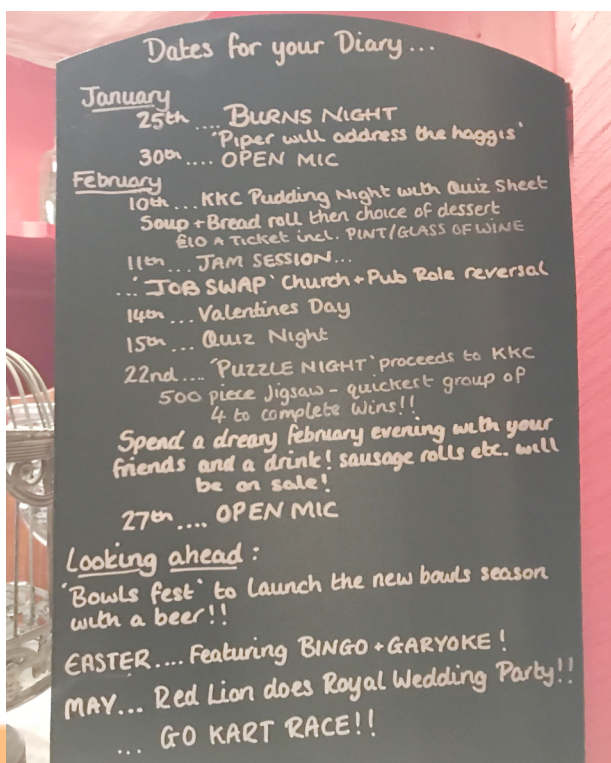 Dates for your Diary...
January
25th .... BURNS NIGHT
'Piper will address the haggis'
30th .... OPEN MIC
February
10th ... KKC Pudding Night with Quiz Sheet
Soup + Bread roll then choice of dessert
£10 A TICKET incl. PINT/GLASS OF WINE
11th ... JAM SESSION...
... 'JOB SWAP' Church + Pub Role reversal
14th ... Valentines Day
15th ... Quiz Night
22nd .... 'PUZZLE NIGHT' proceeds to KKC
500 piece Jigsaw - quickest group of
4 to complete wins!!
Spend a dreary february evening with your
friends and a drink! sausage rolls etc. will
be on sale!
27th .... OPEN MIC
Looking ahead:
'Bowls fest' to launch the new bowls season
with a beer!!
EASTER.... Featuring BINGO + GARYOKE!
MAY... Red Lion does Royal Wedding Party!!
... GO KART RACE!!